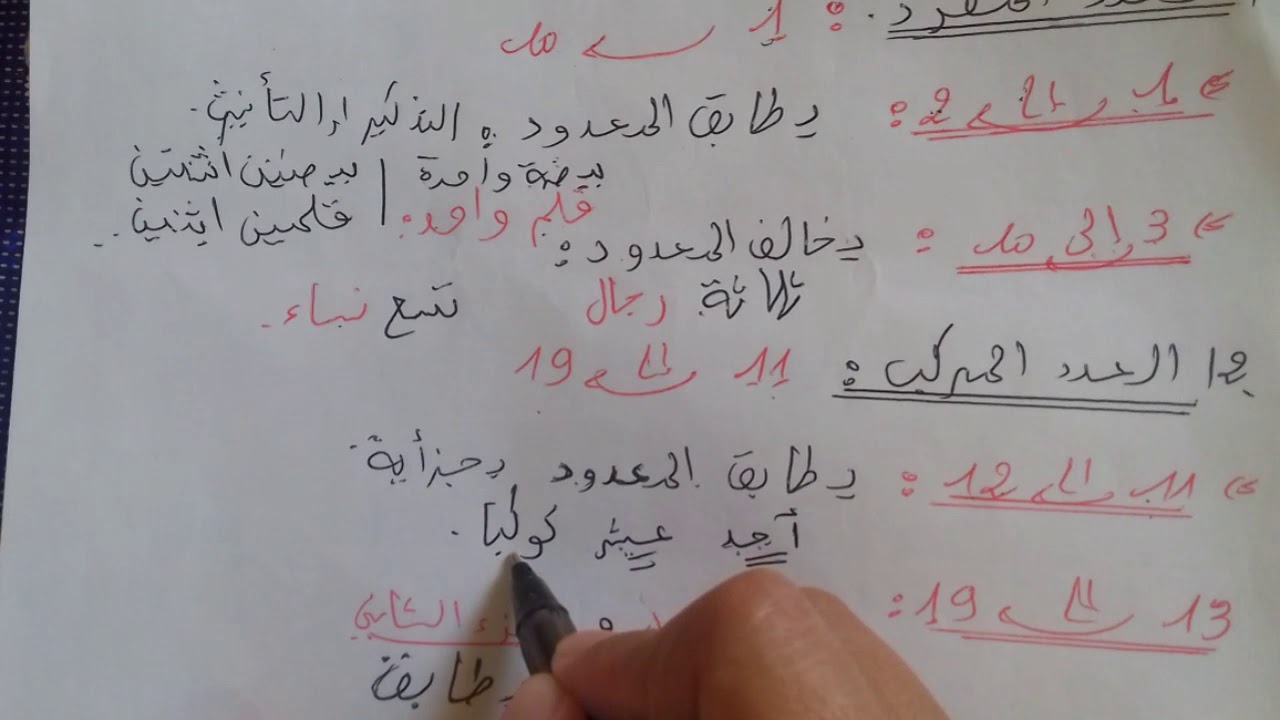 العدد المفرد : 1 → 10
⇐ 1 إلى 2 : يطابق المعدود : التذكير او التأنيث.
بيضة واحدة | بيضتين اثنتين
قلم واحد. | قلمين اثنين..
⇐ 3 إلى 10 : يخالف المعدود :
ثلاثة رجال تسع نساء.
2) العدد المركب : 11 إلى 19
⇐ 11 إلى 12 : يطابق المعدود بجزأية.
أحد عشر كوكبا.
13 إلى 19 : الثاني
يطابق